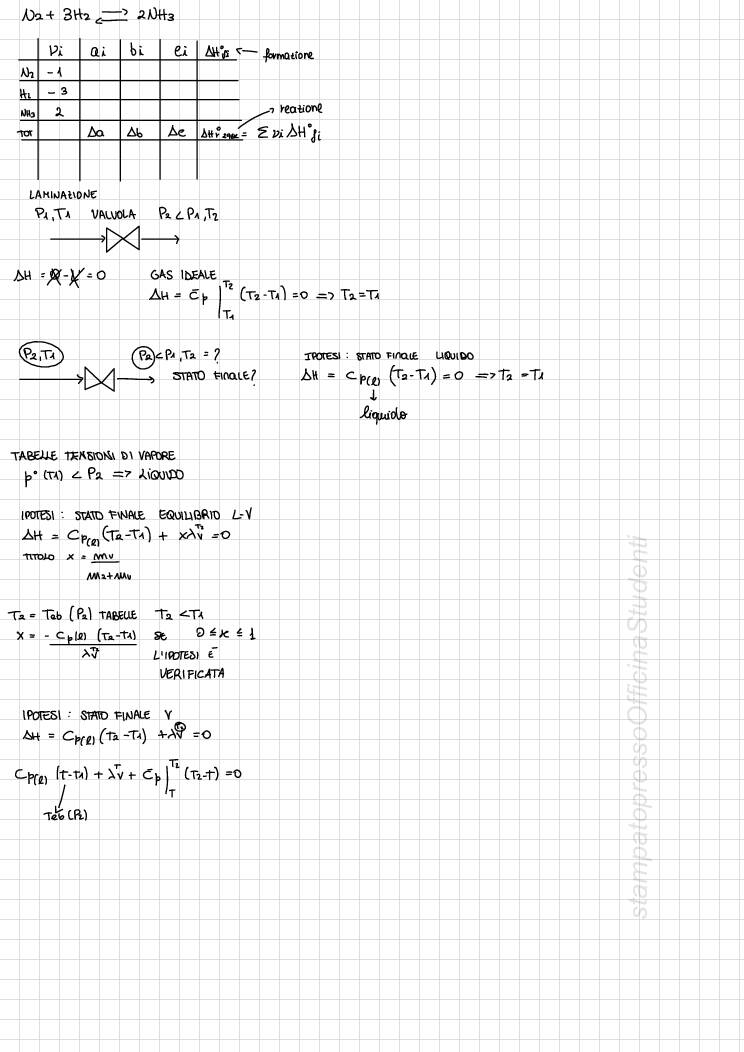 N2 + 3H2 ⇌ 2NH3
νi ai bi ei ΔH°fi ← formazione
N2 -1
H2 -3
NH3 2 → reazione
TOT Δa Δb Δe ΔH°r 298K = Σ νi ΔH°fi
LAMINAZIONE
P1, T1 VALVOLA P2 < P1, T2
ΔH = Q - L = 0 GAS IDEALE
ΔH = c̄p |T1 T2 (T2-T1) = 0 => T2 = T1
P2, T1 P2 < P1, T2 = ? IPOTESI: STATO FINALE LIQUIDO
STATO FINALE? ΔH = Cp(l) (T2-T1) = 0 => T2 = T1
liquido
TABELLE TENSIONI DI VAPORE
p° (T1) < P2 => LIQUIDO
IPOTESI: STATO FINALE EQUILIBRIO L-V
ΔH = Cp(l) (T2-T1) + xλv^T2 = 0
TITOLO x = mv
m2+mv
T2 = Teb (P2) TABELLE T2 < T1
x = - Cp(l) (T2-T1) SE 0 ≤ x ≤ 1
λv L'IPOTESI È
VERIFICATA
IPOTESI: STATO FINALE V
ΔH = Cp(l) (T2-T1) + λv^T2 = 0
Cp(l) (T-T1) + λv^T + c̄p |T T2 (T2-T) = 0
Teb (P2)
stampatopressoOfficinaStudenti